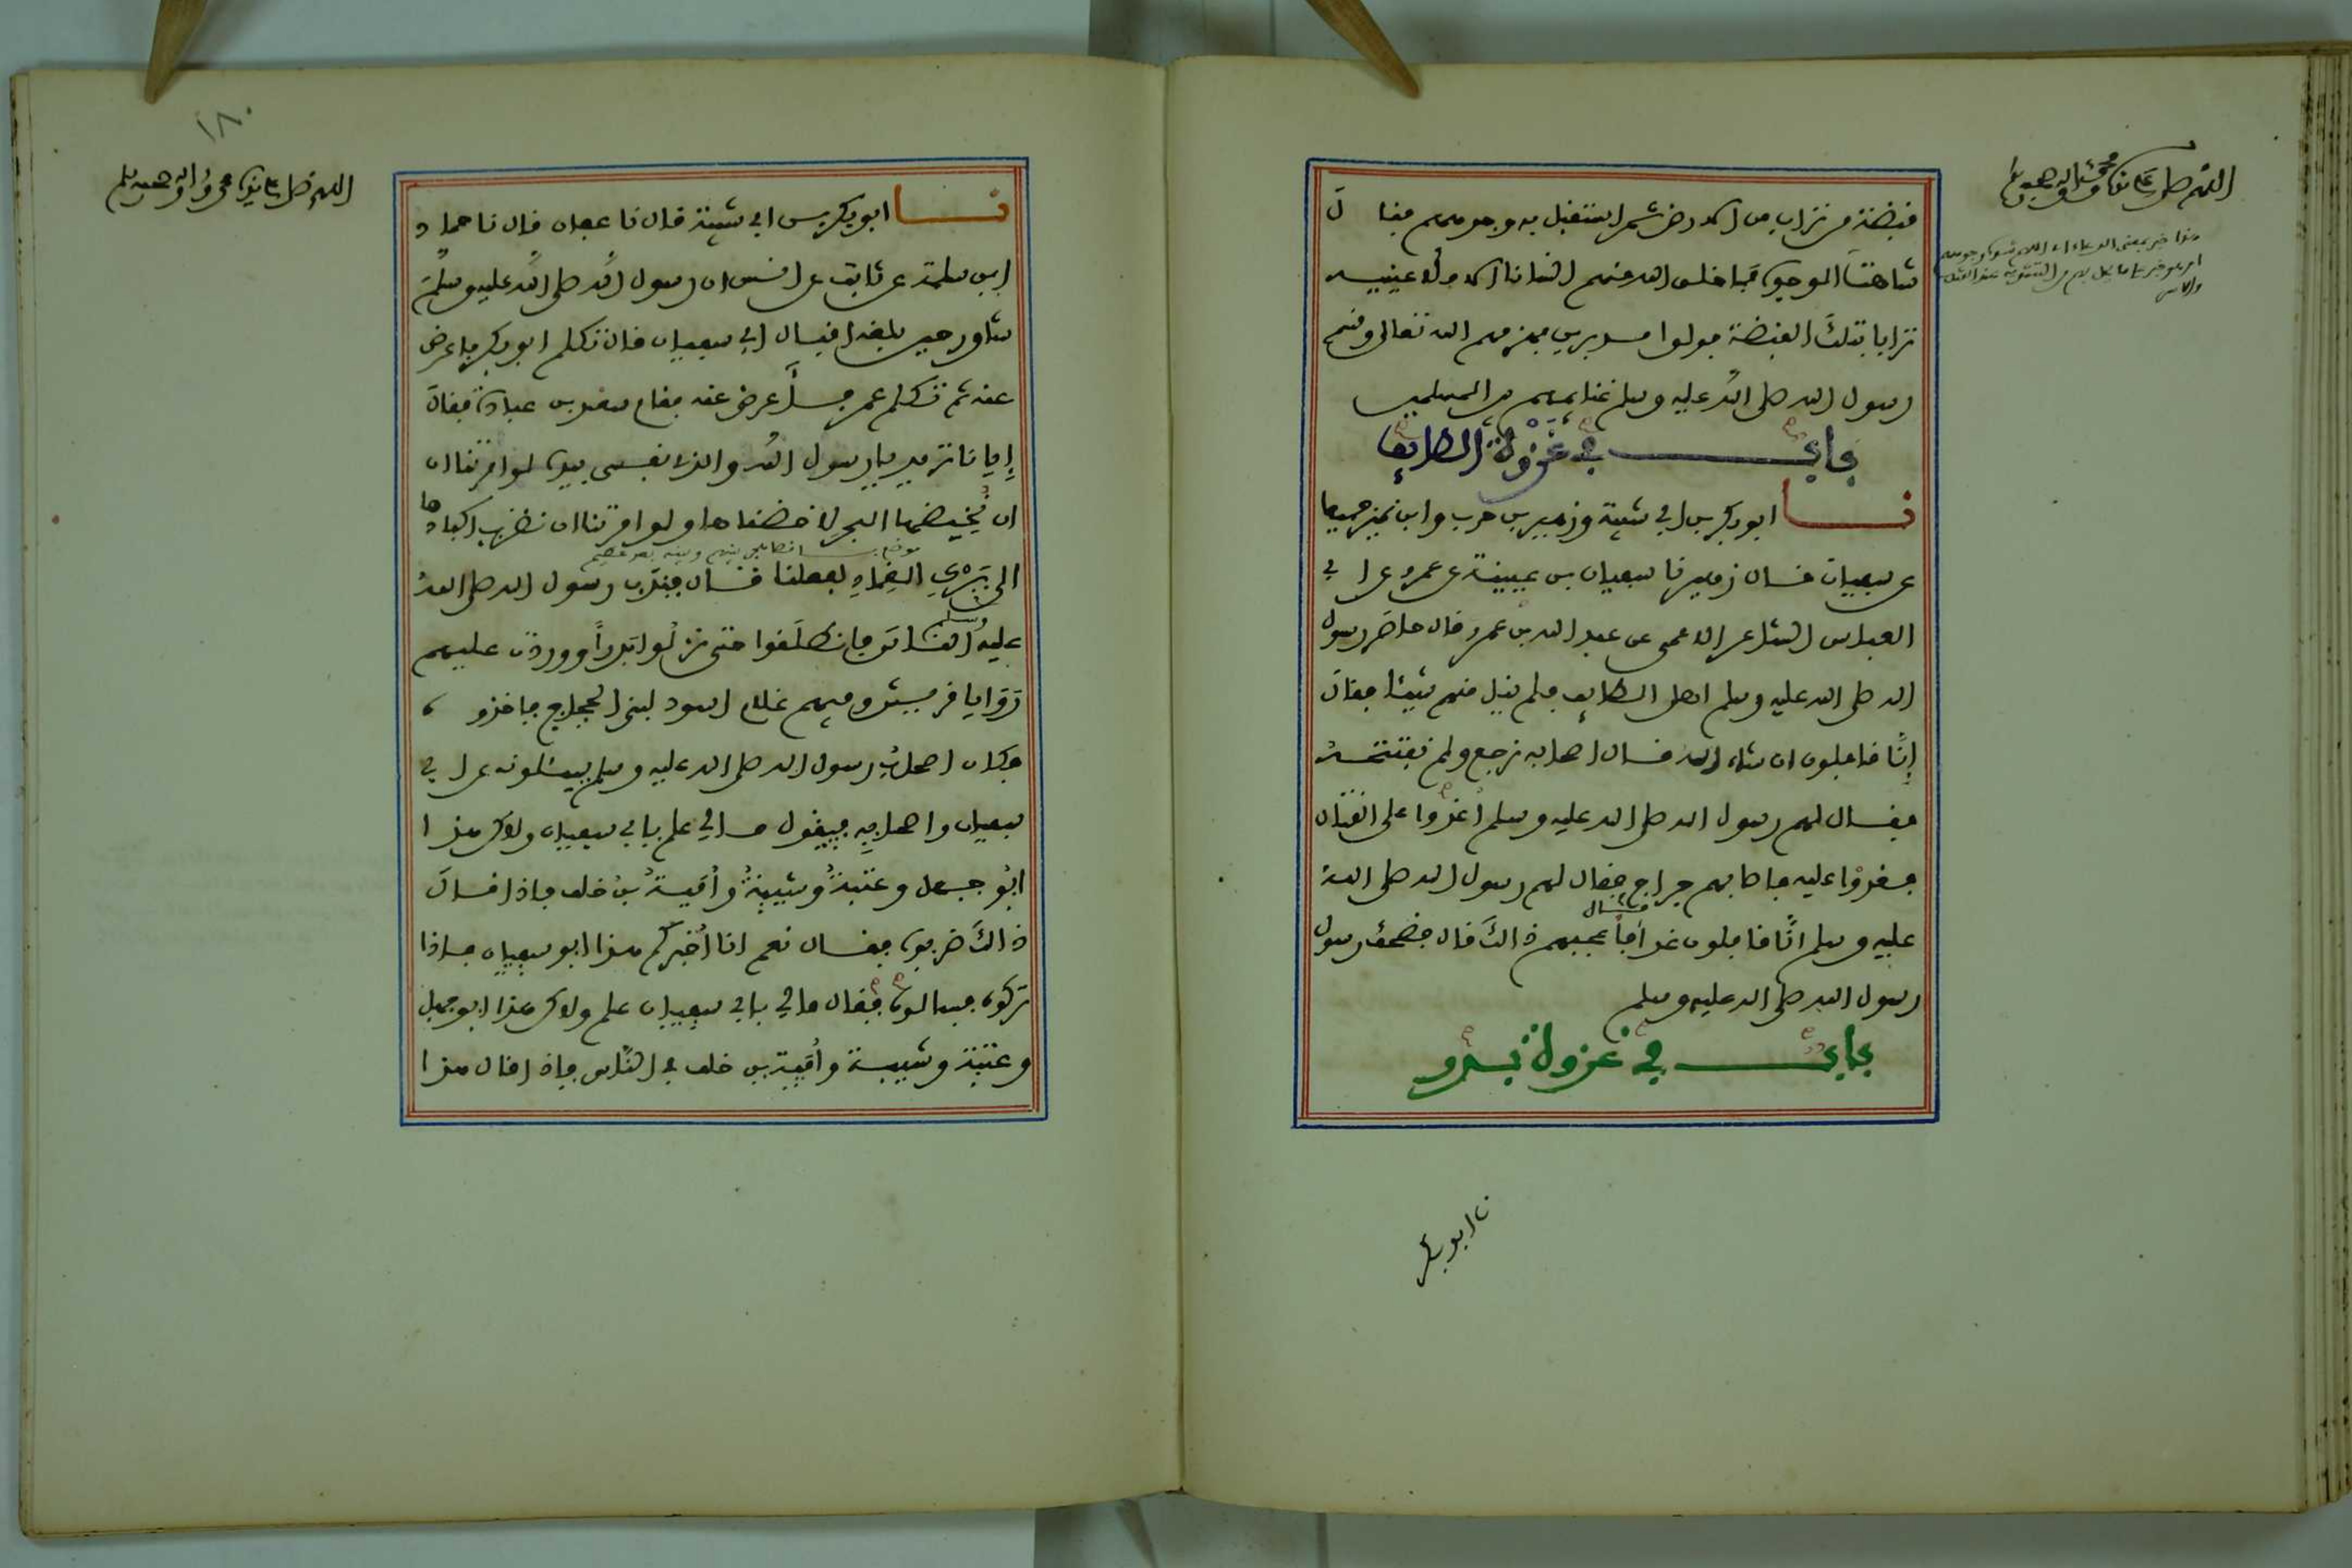 اللهم صل على نبينا محمد وآله وصحبه وسلم
قبضة من تراب من الارض ثم استقبل به وجوههم فقال
شاهت الوجوه فما خلق الله منهم انسانا الا ملأ عينيه
ترابا بتلك القبضة فولوا مدبرين فهزمهم الله تعالى وقسم
رسول الله صلى الله عليه وسلم غنايمهم بين المسلمين
باب في غزوة الطايف
نا ابو بكر بن ابي شيبة وزهير بن حرب وابن نمير جميعا
عن سفيان قال زهير نا سفيان بن عيينة عن عمرو عن ابي
العباس الشاعر الاعمى عن عبد الله بن عمرو قال حاصر رسول
الله صلى الله عليه وسلم اهل الطايف فلم ينل منهم شيئا فقال
إنّا قافلون ان شاء الله قال اصحابه نرجع ولم نفتتحه
فقال لهم رسول الله صلى الله عليه وسلم اغدوا على القتال
فغدوا عليه فاصابهم جراح فقال لهم رسول الله صلى الله
عليه وسلم انّا قافلون غدا قال فأعجبهم ذالك قال فضحك رسول
رسول الله صلى الله عليه وسلم
باب في غزوة بدر
نا ابو بكر
١٨٠
اللهم صل على نبينا محمد وآله وصحبه وسلم
نا ابو بكر بن ابي شيبة قال نا عفان قال نا حماد
ابن سلمة عن ثابت عن انس ان رسول الله صلى الله عليه وسلم
شاور حين بلغه اقبال ابي سفيان قال تكلم ابو بكر فاعرض
عنه ثم تكلم عمر فأعرض عنه فقام سعد بن عبادة فقال
إيانا تريد يا رسول الله والذي نفسي بيده لو امرتنا ان
ان نُخيضها البحر لاخضناها ولو امرتنا ان نضرب اكبادها
الى برك الغماد لفعلنا قال فندب رسول الله صلى الله
عليه وسلم الناس فانطلقوا حتى نزلوا بدراً ووردت عليهم
روايا قريش وفيهم غلام اسود لبني الحجاج فاخذوه
فكان اصحاب رسول الله صلى الله عليه وسلم يسئلونه عن ابي
سفيان واصحابه فيقول مالي علم بابي سفيان ولاكن هذا
ابو جهل وعتبة وشيبة وأمية بن خلف فاذا قال
ذالك ضربوه فقال نعم انا أخبركم هذا ابو سفيان فاذا
تركوه فسألوه فقال مالي بابي سفيان علم ولاكن هذا ابو جهل
وعتبة وشيبة وأمية بن خلف في الناس فاذا قال هذا